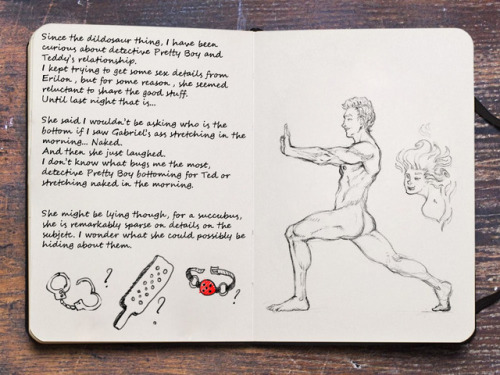 Since the dildosaur thing, I have been
curious about detective Pretty Boy and
Teddy's relationship.
I kept trying to get some sex details from
Erilon, but for some reason, she seemed
reluctant to share the good stuff.
Until last night that is...
She said I wouldn't be asking who is the
bottom if I saw Gabriel's ass stretching in the
morning... Naked.
And then she just laughed.
I don't know what bugs me the most,
detective Pretty Boy bottoming for Ted or
stretching naked in the morning.
She might be lying though, for a succubus,
she is remarkably sparse on details on the
subjetc. I wonder what she could possibly be
hiding about them.
? ? ?